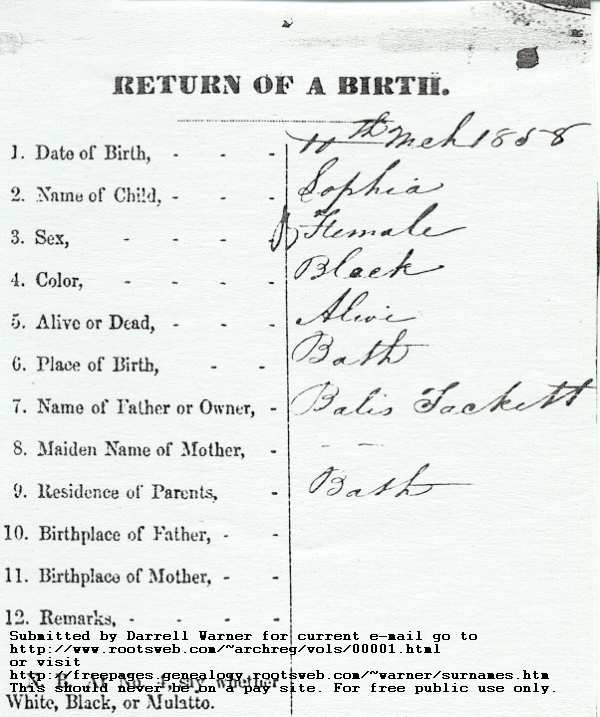 RETURN OF A BIRTH.
1. Date of Birth, - - - 11th Mch 1858
2. Name of Child, - - - Sophia
3. Sex, - - - - Female
4. Color, - - - - Black
5. Alive or Dead, - - - Alive
6. Place of Birth, - - Bath
7. Name of Father or Owner, - Balis Tackett
8. Maiden Name of Mother, - - -
9. Residence of Parents, - Bath
10. Birthplace of Father, - -
11. Birthplace of Mother, - -
12. Remarks, - - - -
Submitted by Darrell Warner for current e-mail go to
http://www.rootsweb.com/~archreg/vols/00001.html
or visit
http://freepages.genealogy.rootsweb.com/~warner/surnames.htm
N. B. At No. 4, say whether
This should never be on a pay site. For free public use only.
White, Black, or Mulatto.